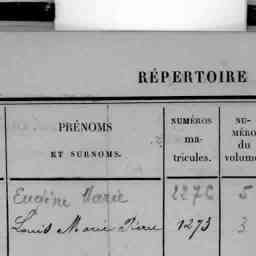 RÉPERTOIRE
PRÉNOMS
ET SURNOMS.
NUMÉROS
ma-
tricules.
NU-
MÉRO
du
volume
Eugène Marie 2276 5
Louis Marie Pierre 1273 3